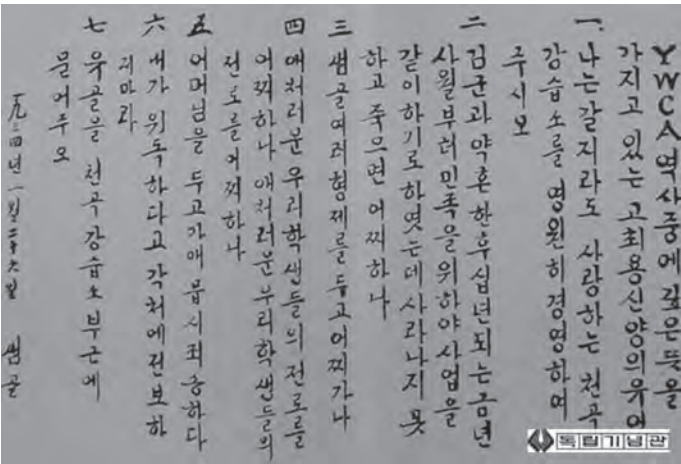 YWCA 역사중에 깊은 뜻을
가지고 있는 고최용신양의 유언
一. 나는 갈지라도 사랑하는 천곡
강습소를 영원히 경영하여
주시오
二 김군과 약혼한후 십년되는 금년
사월부터 민족을 위하야 사업을
같이하기로 하엿는데 사라나지 못
하고 죽으면 어찌하나
三 샘골여러형제를 두고 어찌가나
四 애처러운 우리학생들의 전로를
어찌하나 애처러운 우리학생들의
전로를 어찌하나
五 어머님을 두고가매 몹시 죄송하다
六 내가 위독하다고 각처에 전보하
지마라
七 유골을 천곡강습소 부근에
묻어주오
一九三四년 一월 二十六일 샘골
독립기념관